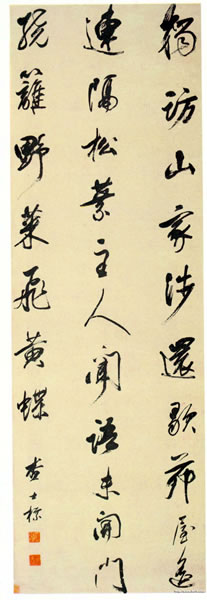 獨訪山家涉還歇茆屋
連隔松葉主人聞語未開門
繞籬野菜飛黃蝶
查士標